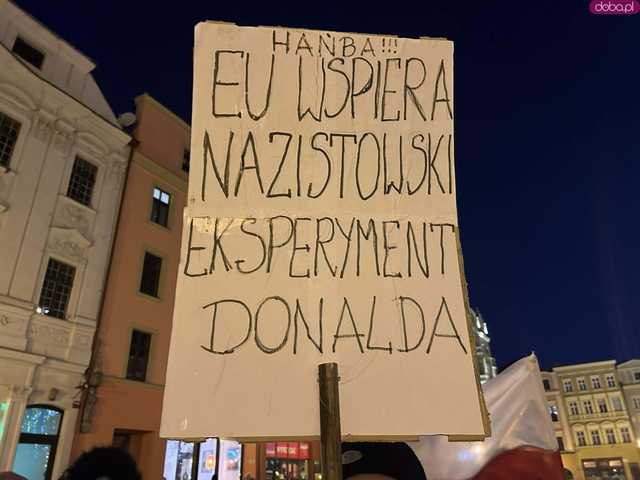 doba.pl
HAŃBA!!!
EU WSPIERA
NAZISTOWSKI
EKSPERYMENT
DONALDA